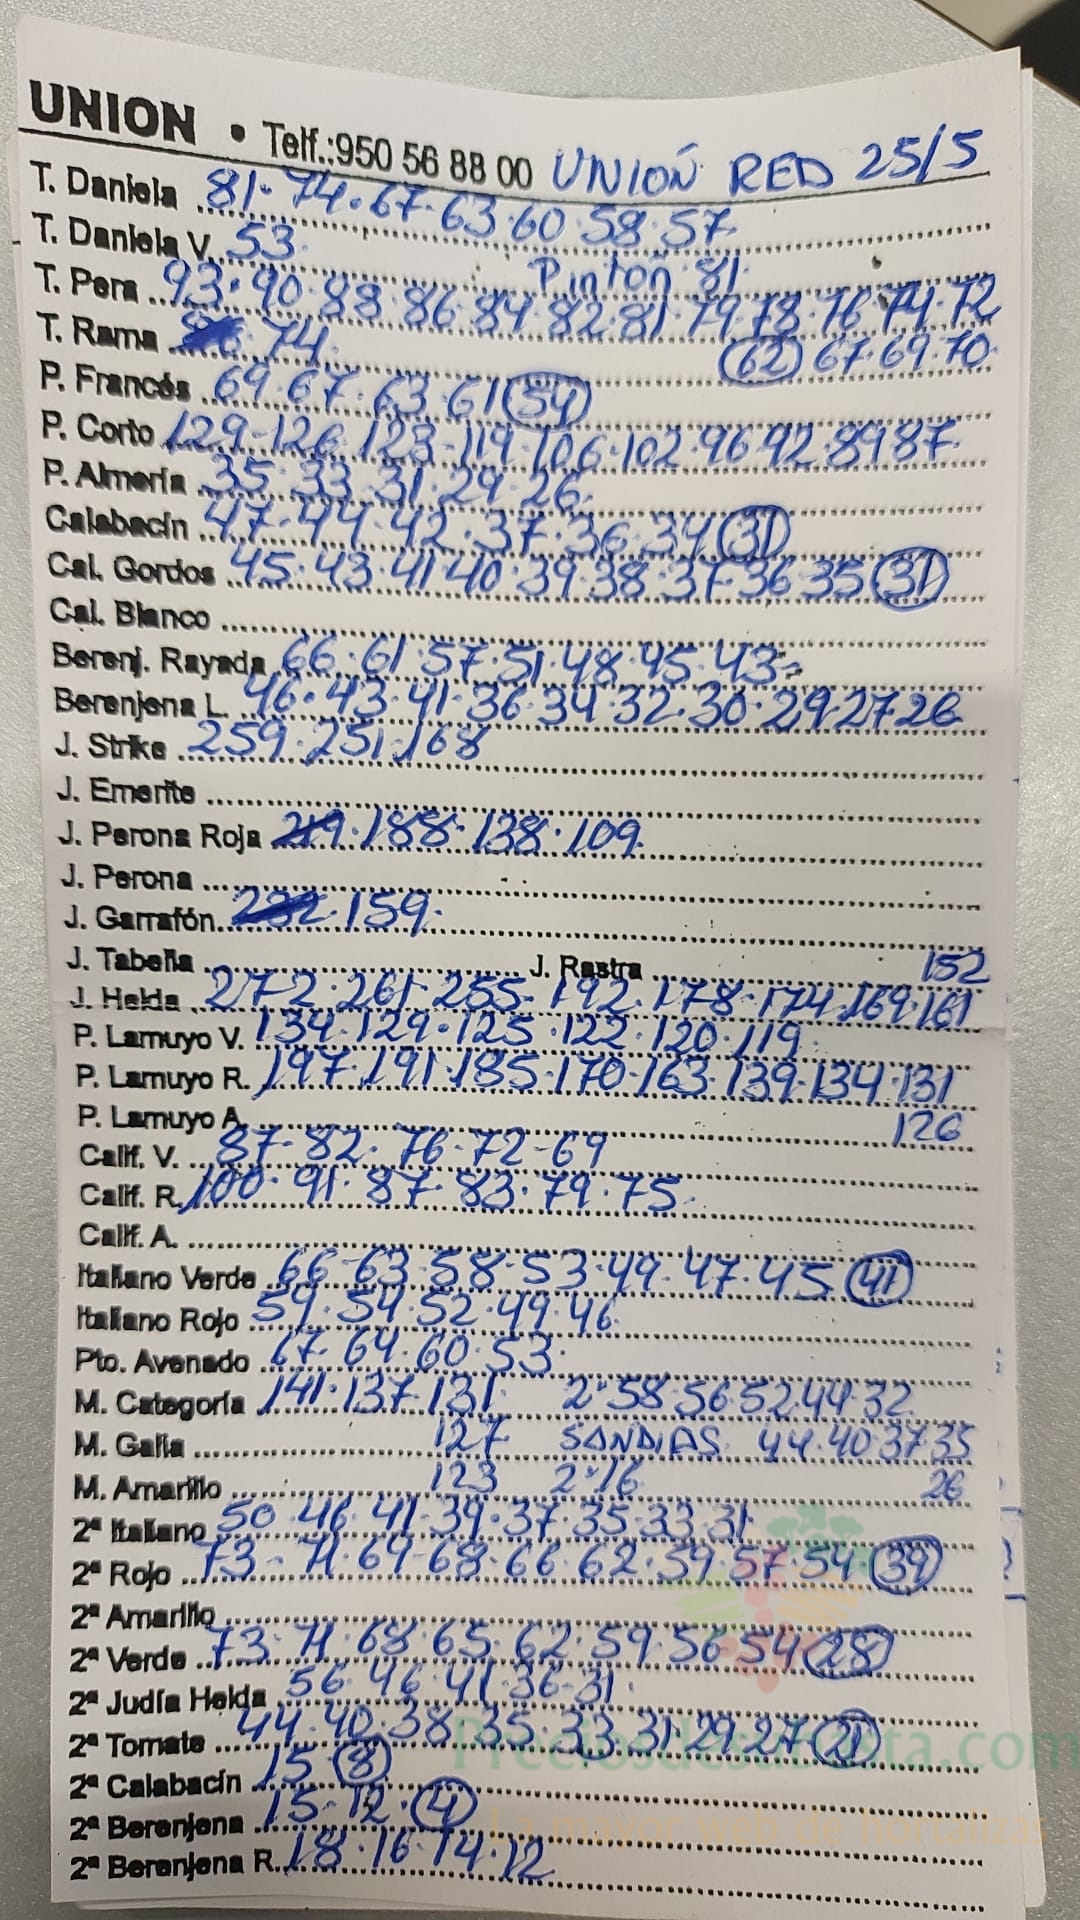 UNION • Telf.:950 56 88 00 UNIÓN RED 25/5
T. Daniela 81·74·67·63·60·58·57
T. Daniela V. 53 Pintón 81
T. Pera 93·90·88·86·84·82·81·79·78·76·74·72
T. Rama 74 (62) 67·69·70
P. Francés 69·67·63·61 (54)
P. Corto 129-126·123-119·106·102·96·92·89·87
P. Almería 35·33·31·29·26
Calabacín 47·44·42·37·36·34 (31)
Cal. Gordos 45·43·41·40·39·38·37·36·35 (31)
Cal. Blanco
Berenj. Rayada 66·61·57·51·48·45·43
Berenjena L. 46·43·41·36·34·32·30·29·27·26
J. Strike 259·251·168
J. Emerite
J. Perona Roja 219·188·138·109
J. Perona
J. Garrafón 232·159
J. Tabeña J. Rastra 152
J. Helda 272·261·255·192·178·174·169·161
P. Lamuyo V. 134·129·125·122·120·119
P. Lamuyo R. 197·191·185·170·163·139·134·131
P. Lamuyo A. 126
Calif. V. 87·82·76·72-69
Calif. R. 100·91·87·83·79·75
Calif. A.
Italiano Verde 66-63·58·53·49·47·45 (41)
Italiano Rojo 59·54·52·49·46
Pto. Avenado 67·64·60·53
M. Categoría 141·137·131 2ª 58·56·52·44·32
M. Galia 127 SANDIAS 44·40·37·35
M. Amarillo 123 2ª 16 26
2ª Italiano 50·46·41·39·37·35·33·31
2ª Rojo 73-71·69-68·66·62·59·57·54 (39)
2ª Amarillo
2ª Verde 73·71·68·65·62·59·56·54 (28)
2ª Judía Helda 56·46·41·36-31
2ª Tomate 44·40·38·35·33·31·29·27 (21)
2ª Calabacín 15 (8)
2ª Berenjena 15-12·(4)
2ª Berenjena R. 18·16·14·12
Preciosdesubasta.com
La mayor web de hortalizas